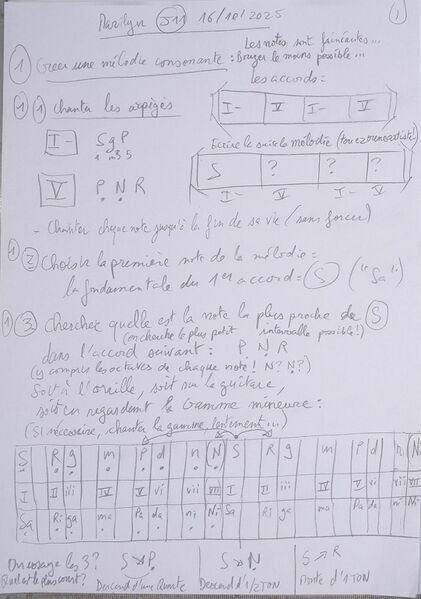 Marilyn J11 16/10/2025
1
Les notes sont fainéantes...
1 Créer une mélodie consonante : Bouger le moins possible...
Les accords =
1 1 chanter les arpèges
I- V I- V
I- S g P
1 m3 5
Ecrire la suite la mélodie
S ? ? ?
I- V I- V
V P N R
- Chanter chaque note jusqu'à la fin de sa vie (sans forcer)
1 2 Choisir la première note de la mélodie =
la fondamentale du 1er accord = S ("Sa")
1 3 Chercher quelle est la note la plus proche de S
(on cherche le plus petit intervalle possible!)
dans l'accord suivant : P N R
(y compris les octaves de chaque note ! N? N?)
Soit à l'oreille, soit sur la guitare,
soit en regardant la Gamme mineure :
(Si nécessaire, chanter la gamme, lentement...)
S R g m P d n N S R g m P d n N
I II iii IV V vi vii VII I II iii IV V vi vii VII
Sa Ri ga ma Pa da ni Ni Sa Ri ga ma Pa da ni Ni
On essaye les 3? S P S N S R
Quel est le plus court? Descend d'une Quarte Descend d'1/2 TON Monte d'1 TON